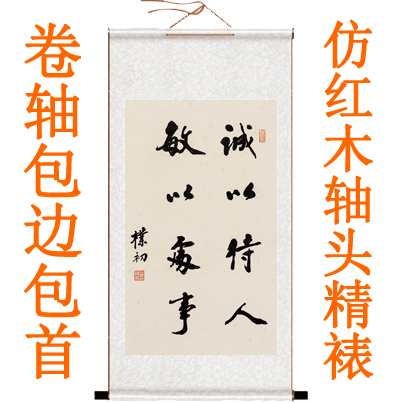 卷轴包边包首
仿红木轴头精裱
誠以待人
敏以處事
樸初